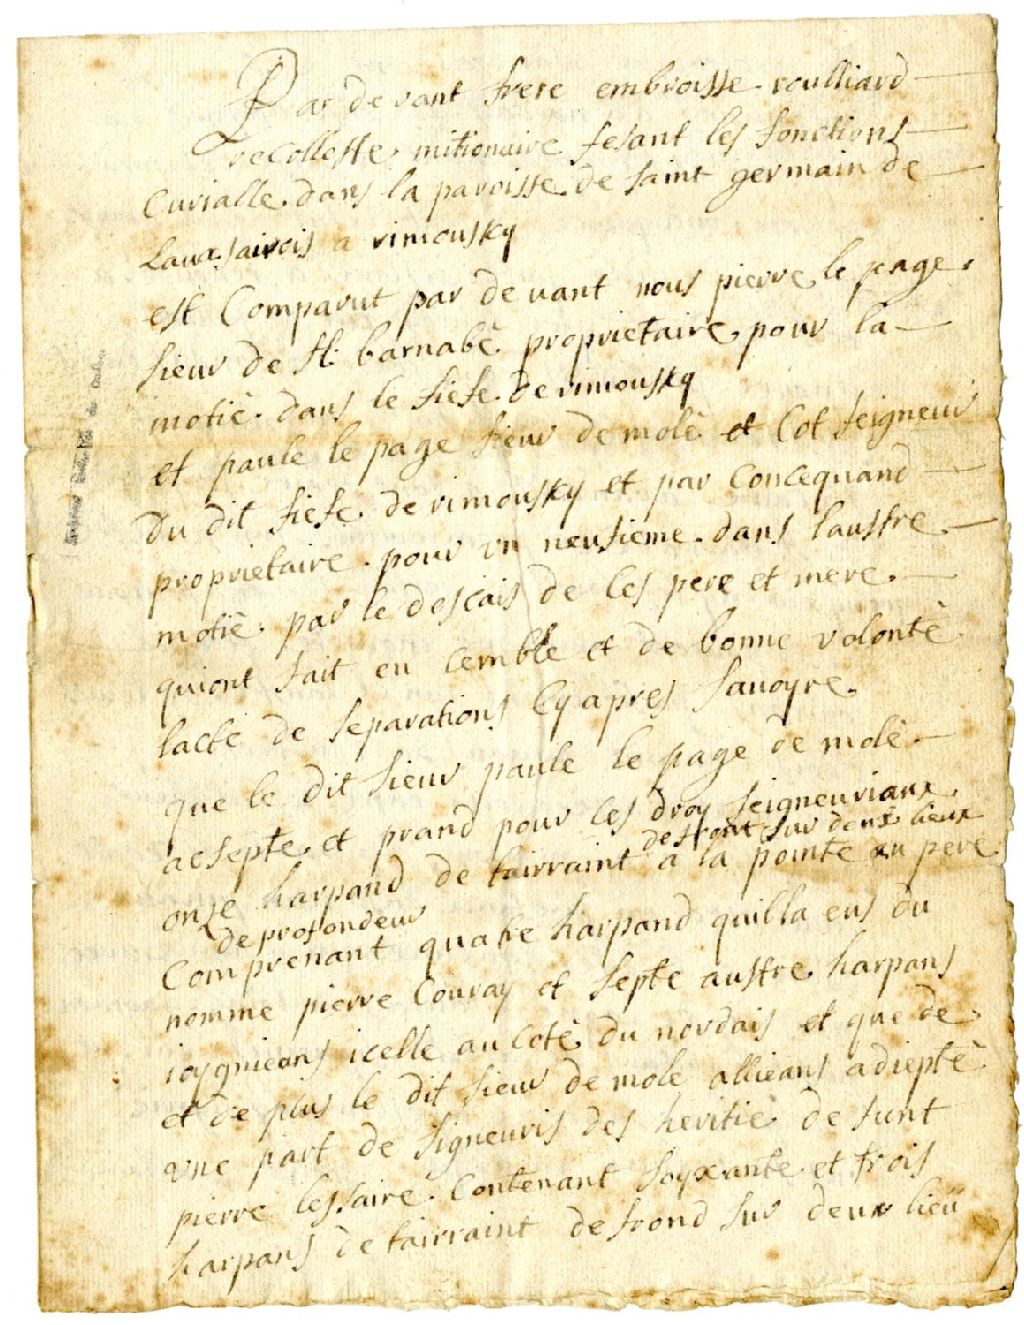 Par devant frere embroisse roulliard
recollesse mitionaire fesant les fonctions
Curialle dans la paroisse de saint germain de
Lauxsairois a rimousky
est Comparut par de vant nous pierre le page
sieur de st barnabé proprietaire pour la
motié dans le fiefe de rimousky
et paule le page sieur de molé et Cot seigneur
Du dit fiefe de rimousky et par Concequand
proprietaire pour un neufieme dans laustre
motié par le descais de ses pere et mere
quiont fait en cemble et de bonne volonté
lacte de separations Cy apres Savoyre
que le dit sieur paule le page de molé
acsepte et prand pour ces droy seigneuriaux
de front sur deux lieux
onze harpand de tairraint a la pointe au pere
de profondeur
Comprenant quatre harpand quilla eus du
nomme pierre Couray et septe austre harpans
ioygnieans icelle au Coté du nordais et que de
et de plus le dit sieur de molé allieans adiepté
une part de signeuris des heritié de funt
pierre lessaire Contenant soyxante et trois
harpans de tairraint de frond sur deux lieu